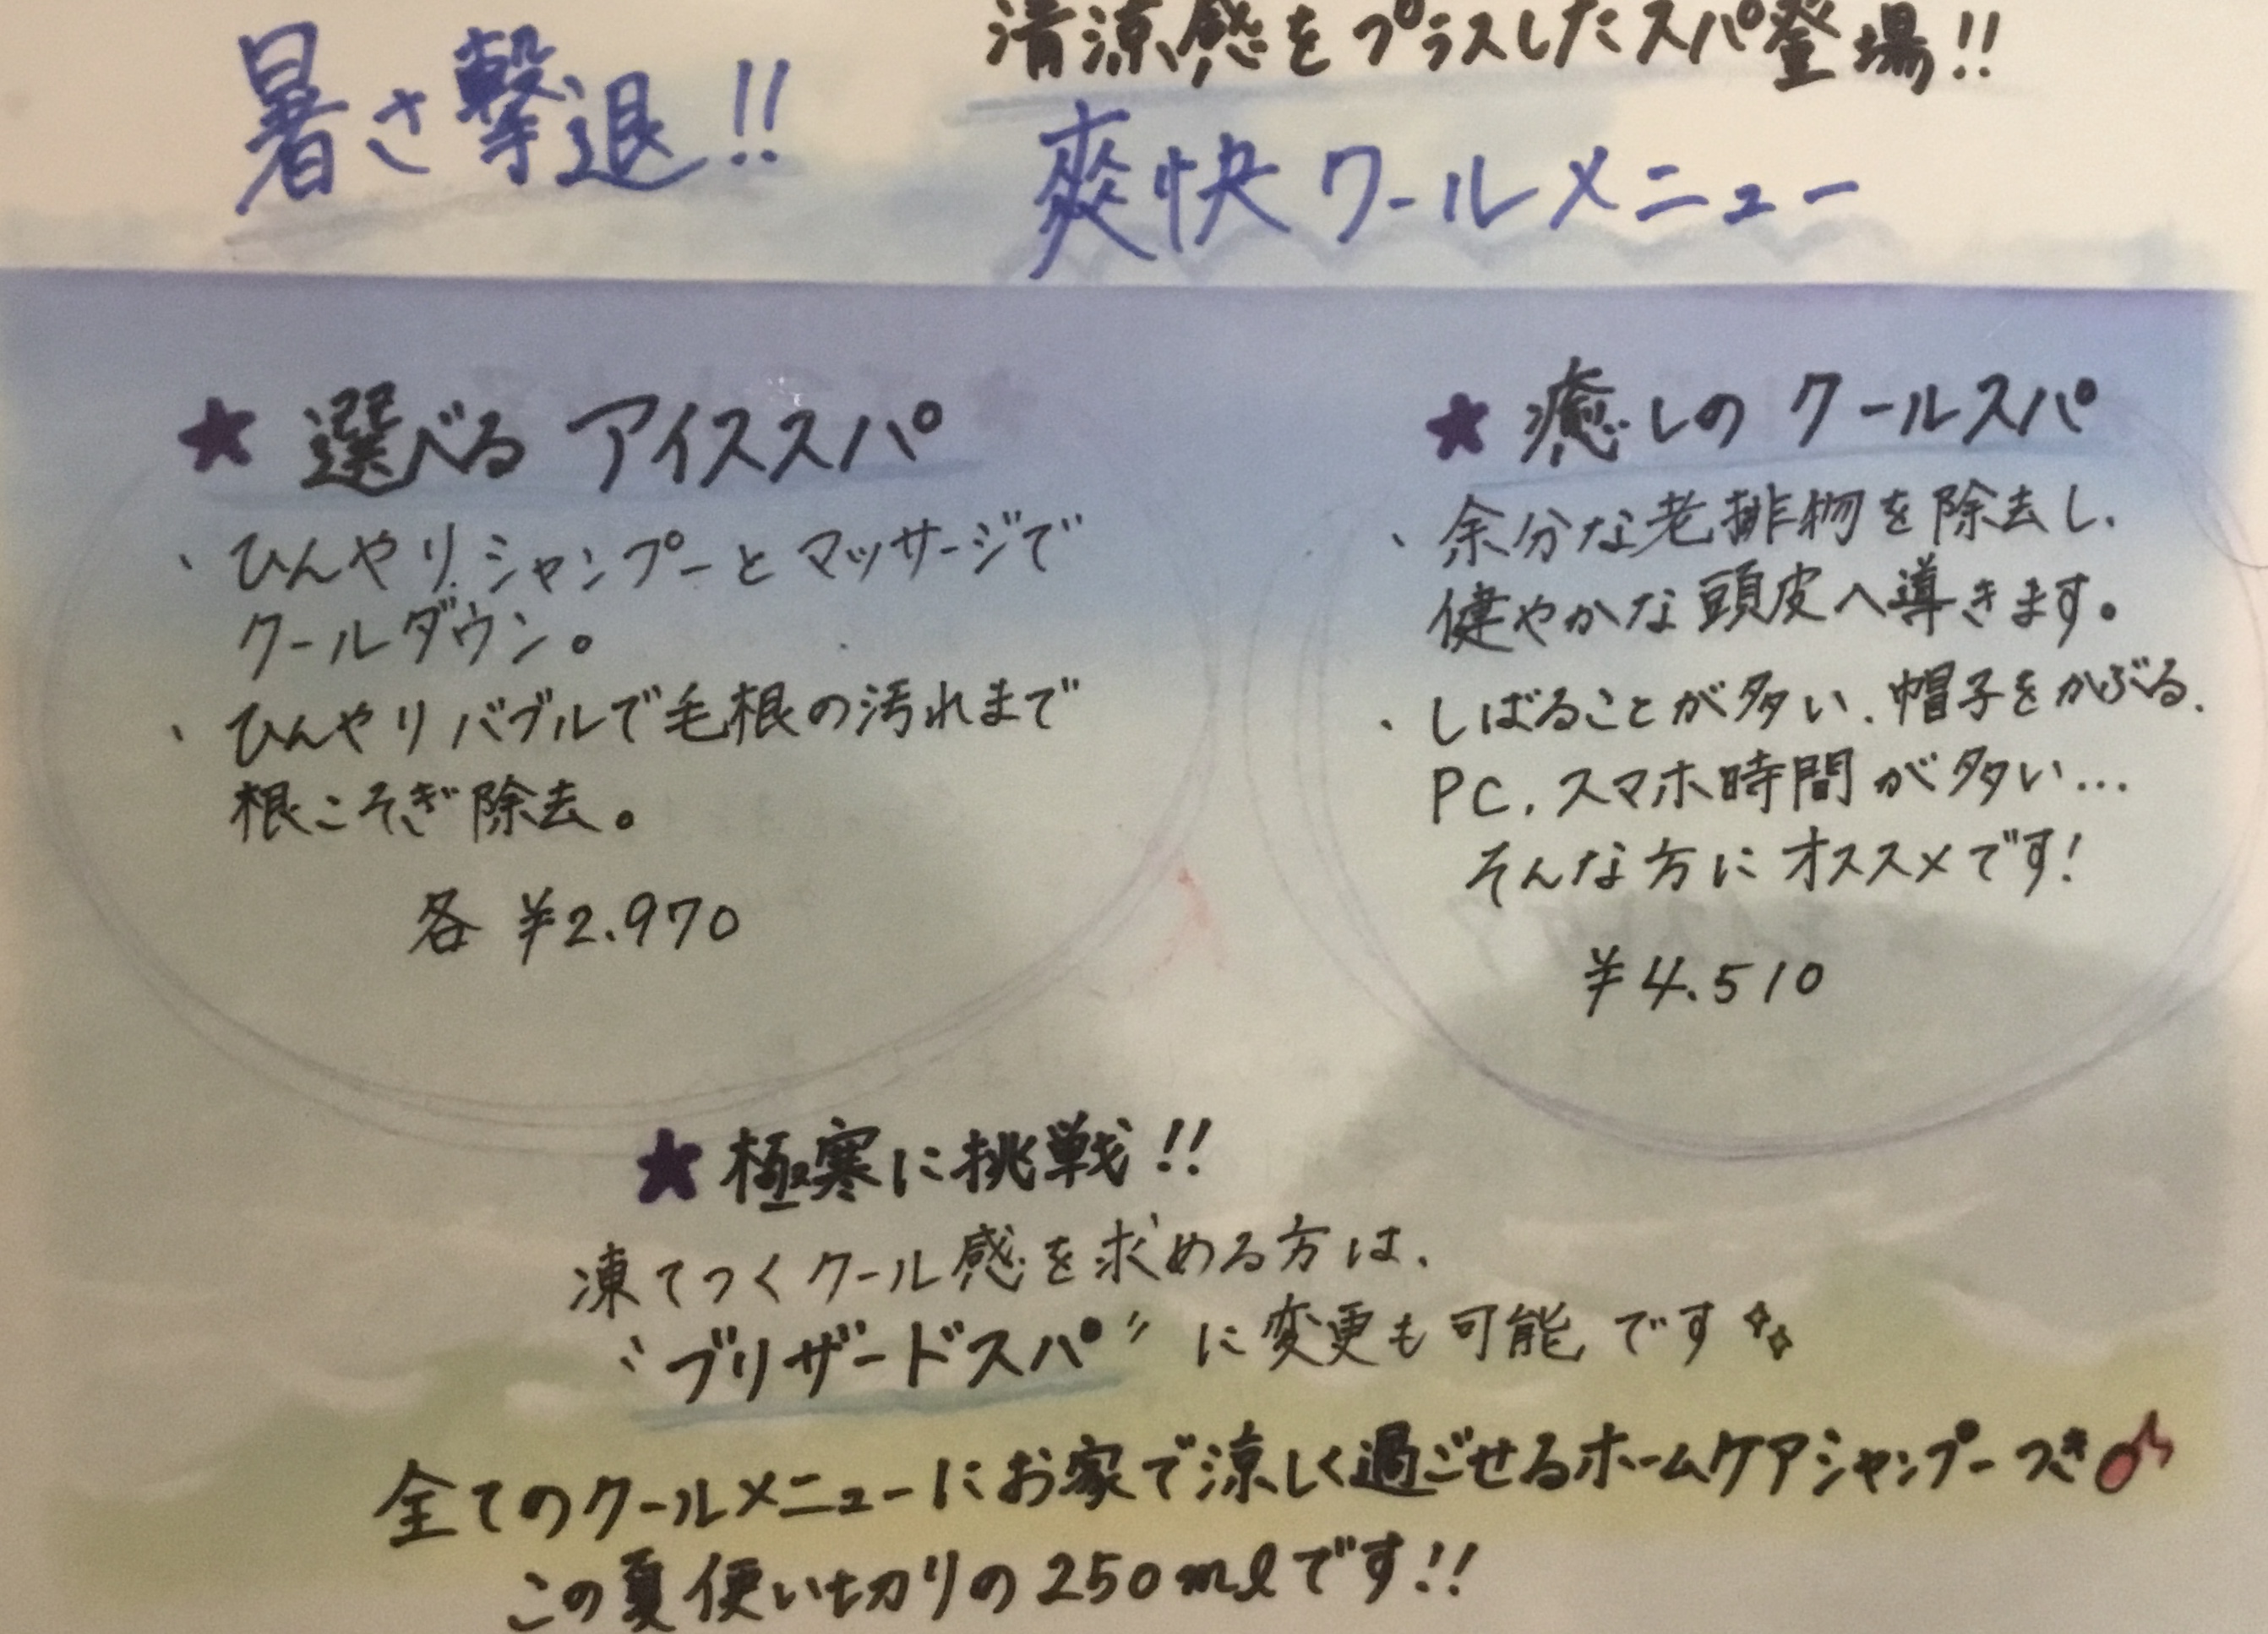 暑さ撃退!!
清涼感をプラスしたスパ登場!!
爽快クールメニュー
★ 選べる アイススパ
・ひんやりシャンプーとマッサージで
クールダウン。
・ひんやりバブルで毛根の汚れまで
根こそぎ除去。
各 ¥2.970
★ 癒しの クールスパ
・余分な老排物を除去し、
健やかな頭皮へ導きます。
・しばることが多い、帽子をかぶる、
PC、スマホ時間が多い…
そんな方にオススメです!
¥4.510
★ 極寒に挑戦!!
凍てつくクール感を求める方は、
"ブリザードスパ" に変更も可能です
全てのクールメニューにお家で涼しく過ごせるホームケアシャンプーつき
この夏使い切りの250mlです!!